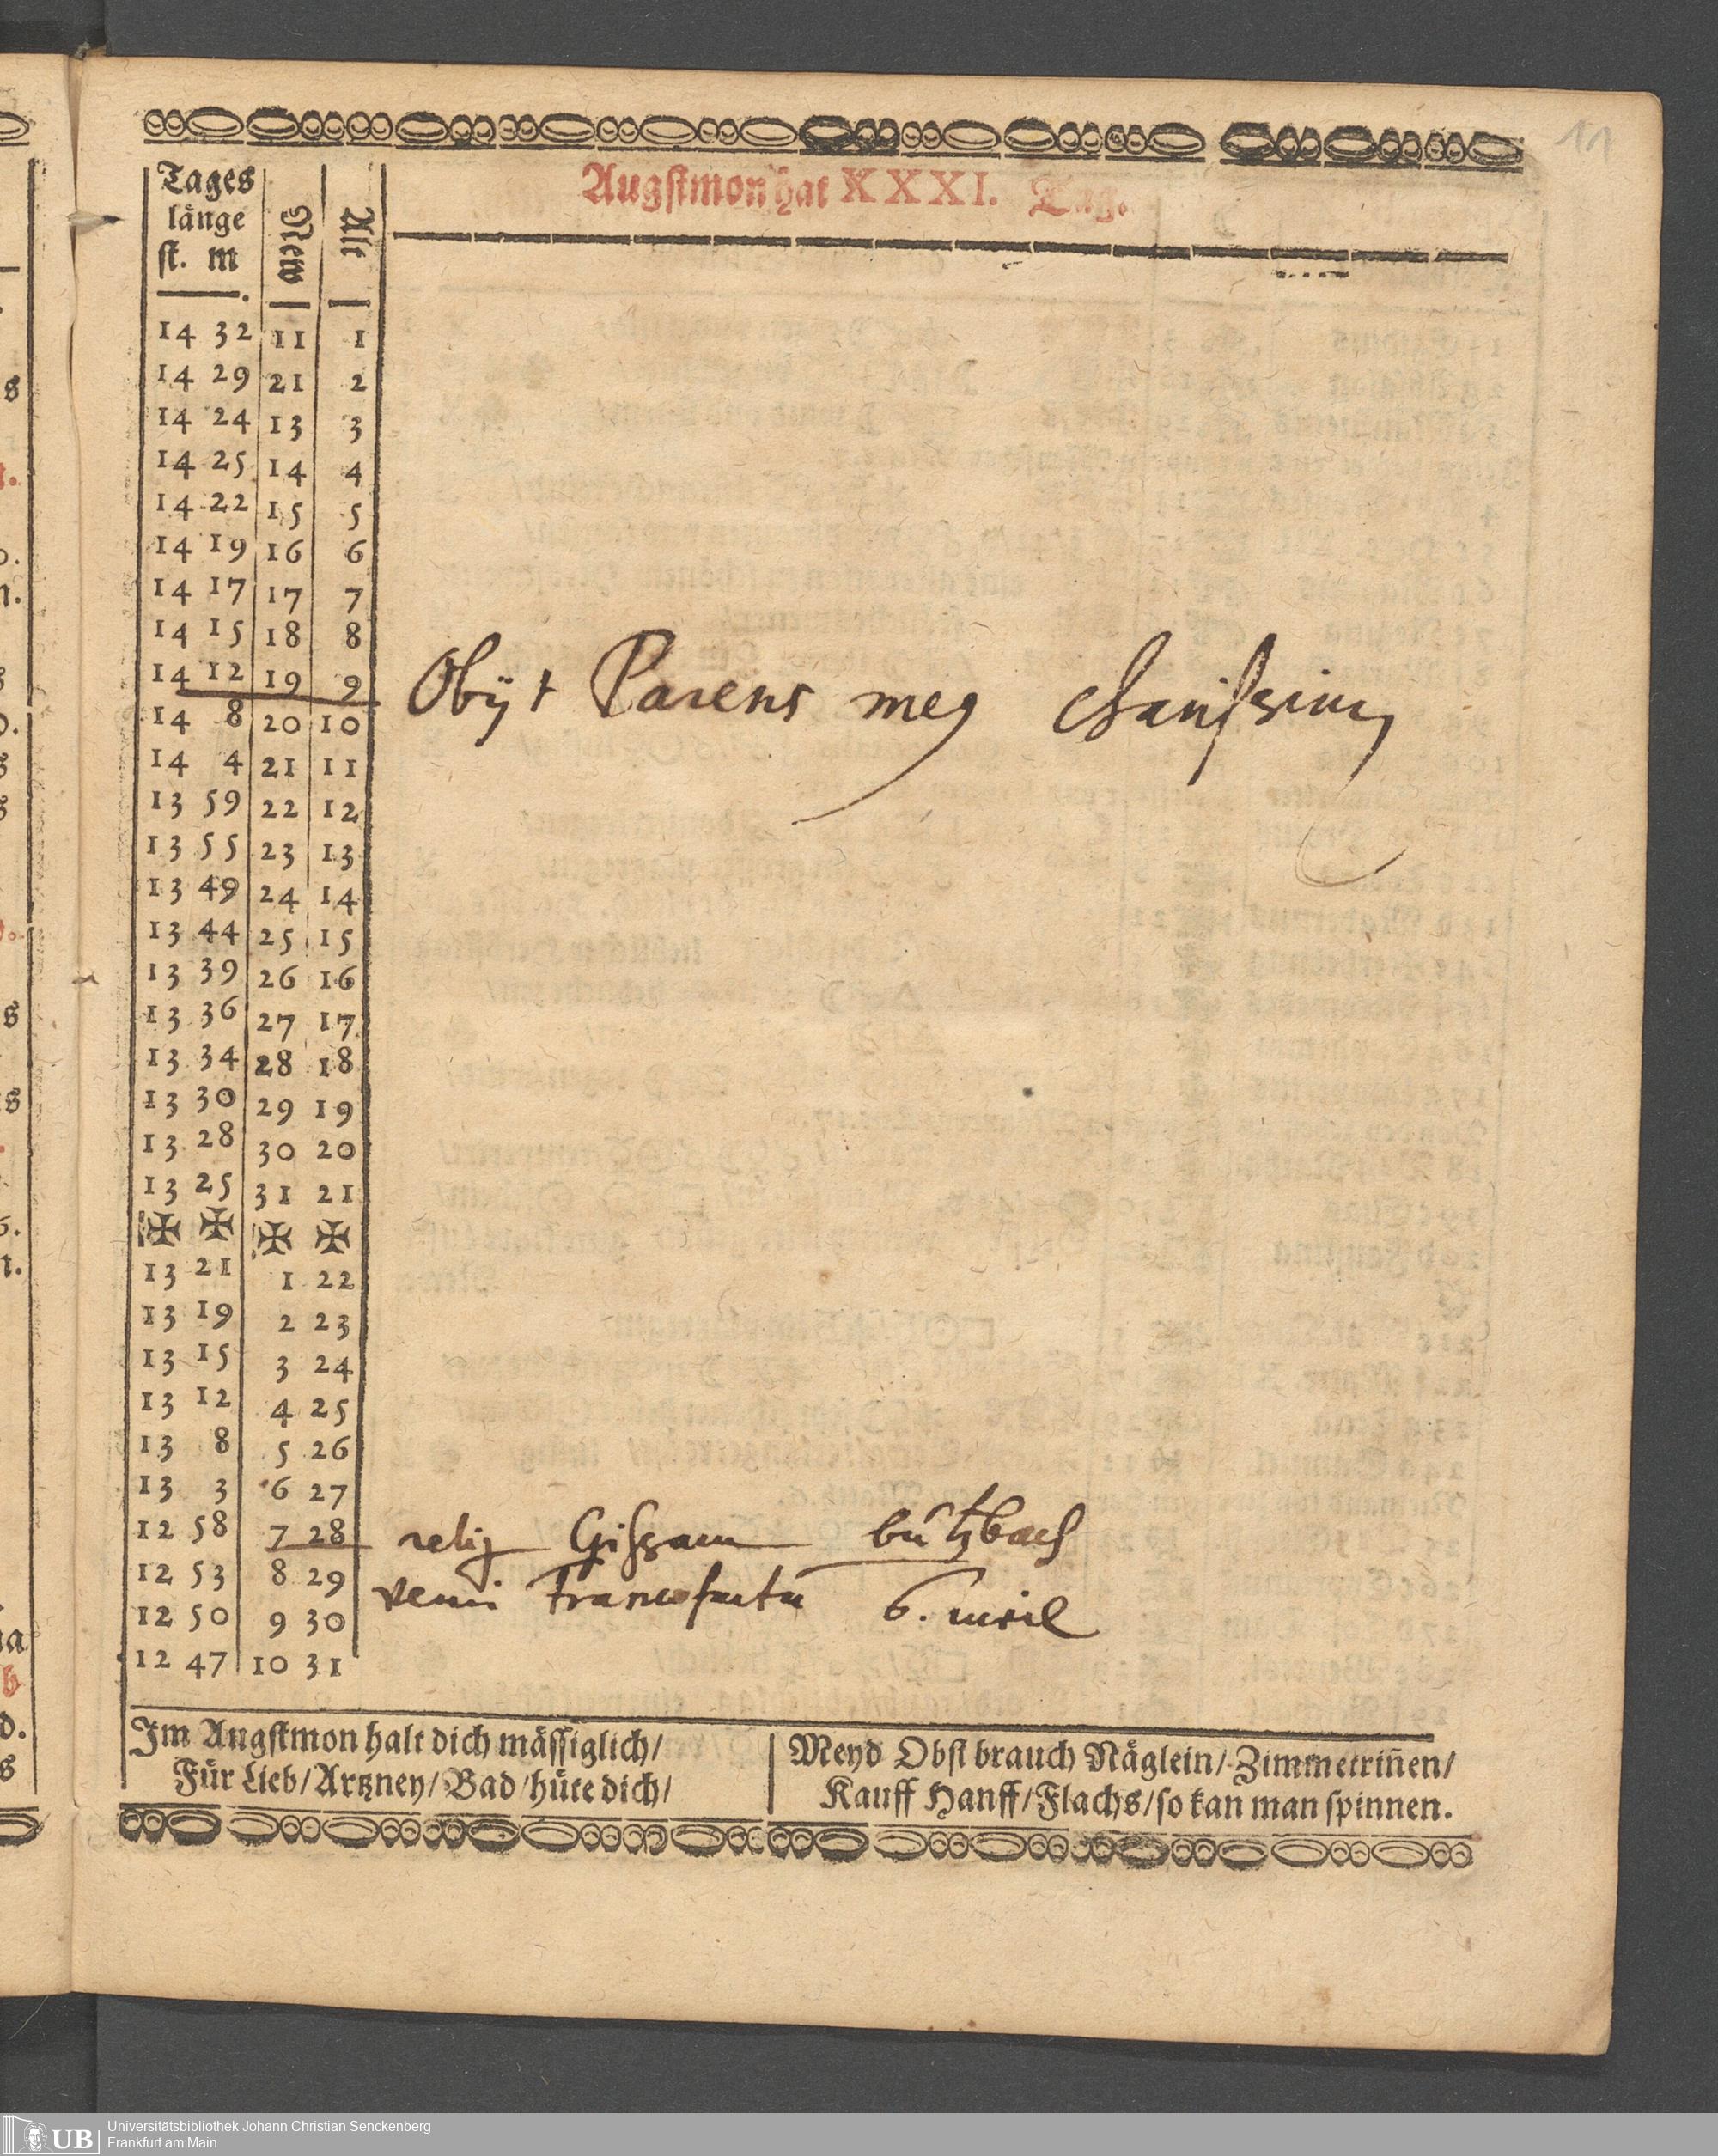 11
Augstmon hat XXXI. Tag.
Tages
länge
st. m
New
Alt
14 32 11 1
14 29 21 2
14 24 13 3
14 25 14 4
14 22 15 5
14 19 16 6
14 17 17 7
14 15 18 8
14 12 19 9
Obijt Parens meg charißimg
14 8 20 10
14 4 21 11
13 59 22 12
13 55 23 13
13 49 24 14
13 44 25 15
13 39 26 16
13 36 27 17
13 34 28 18
13 30 29 19
13 28 30 20
13 25 31 21
✠ ✠ ✠ ✠
13 21 1 22
13 19 2 23
13 15 3 24
13 12 4 25
13 8 5 26
13 3 6 27
12 58 7 28
Gißam bůtzbach
12 53 8 29
veni Francofurtū 6. meil
12 50 9 30
12 47 10 31
Im Augstmon halt dich mässiglich/
Für Lieb/Artzney/Bad/hüte dich/
Meyd Obst brauch Näglein/Zimmetriñen/
Kauff Hanff/Flachs/so kan man spinnen.
UB
Universitätsbibliothek Johann Christian Senckenberg
Frankfurt am Main